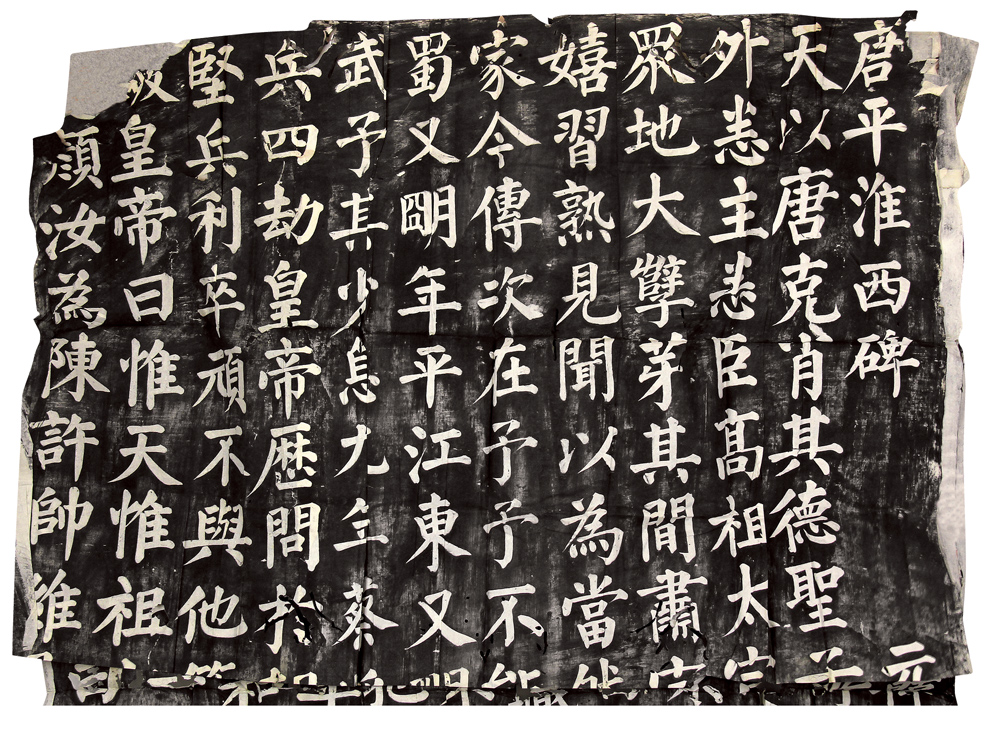 唐平淮西碑元
天以唐克肖其德聖子
外恙主恙臣髙祖太宗
眾地大孼芽其間肅宗
嬉習熟見聞以為當然
家今傳次在予予不能
蜀又朙年平江東又
武予其少怠九年蔡
兵四劫皇帝歴問於
堅兵利卒頑不與他等
皇帝曰惟天惟祖
顏汝為陳許帥維